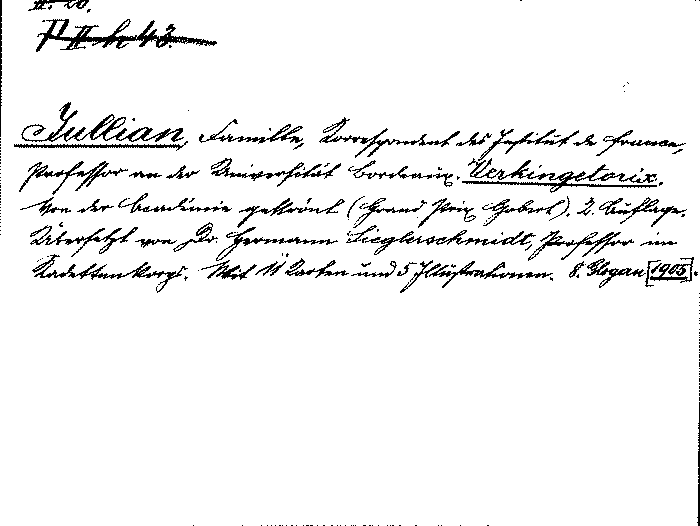 II. 20.
P II h 43.
Jullian, Camille, Korrespondent des Institut de France,
Professor an der Universität Bordeaux. Verkingetorix.
Von der Academie gekrönt (Grand Prix Gobert). 2. Auflage.
Übersetzt von Dr. Hermann Sieglerschmidt, Professor im
Kadettenkorps. Mit 11 Karten und 5 Illustrationen. 8. Glogau [1905].